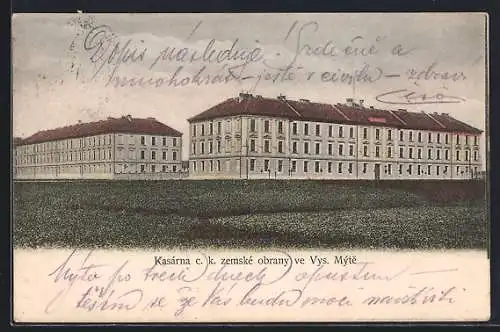 Dopis následuje. Srdečně a
mnohokrát - ještě v civilu - zdraví
Kasárna c. k. zemské obrany ve Vys. Mýtě
Mýto po třech dnech opustím -
těším se že Vás budu moci navštívit